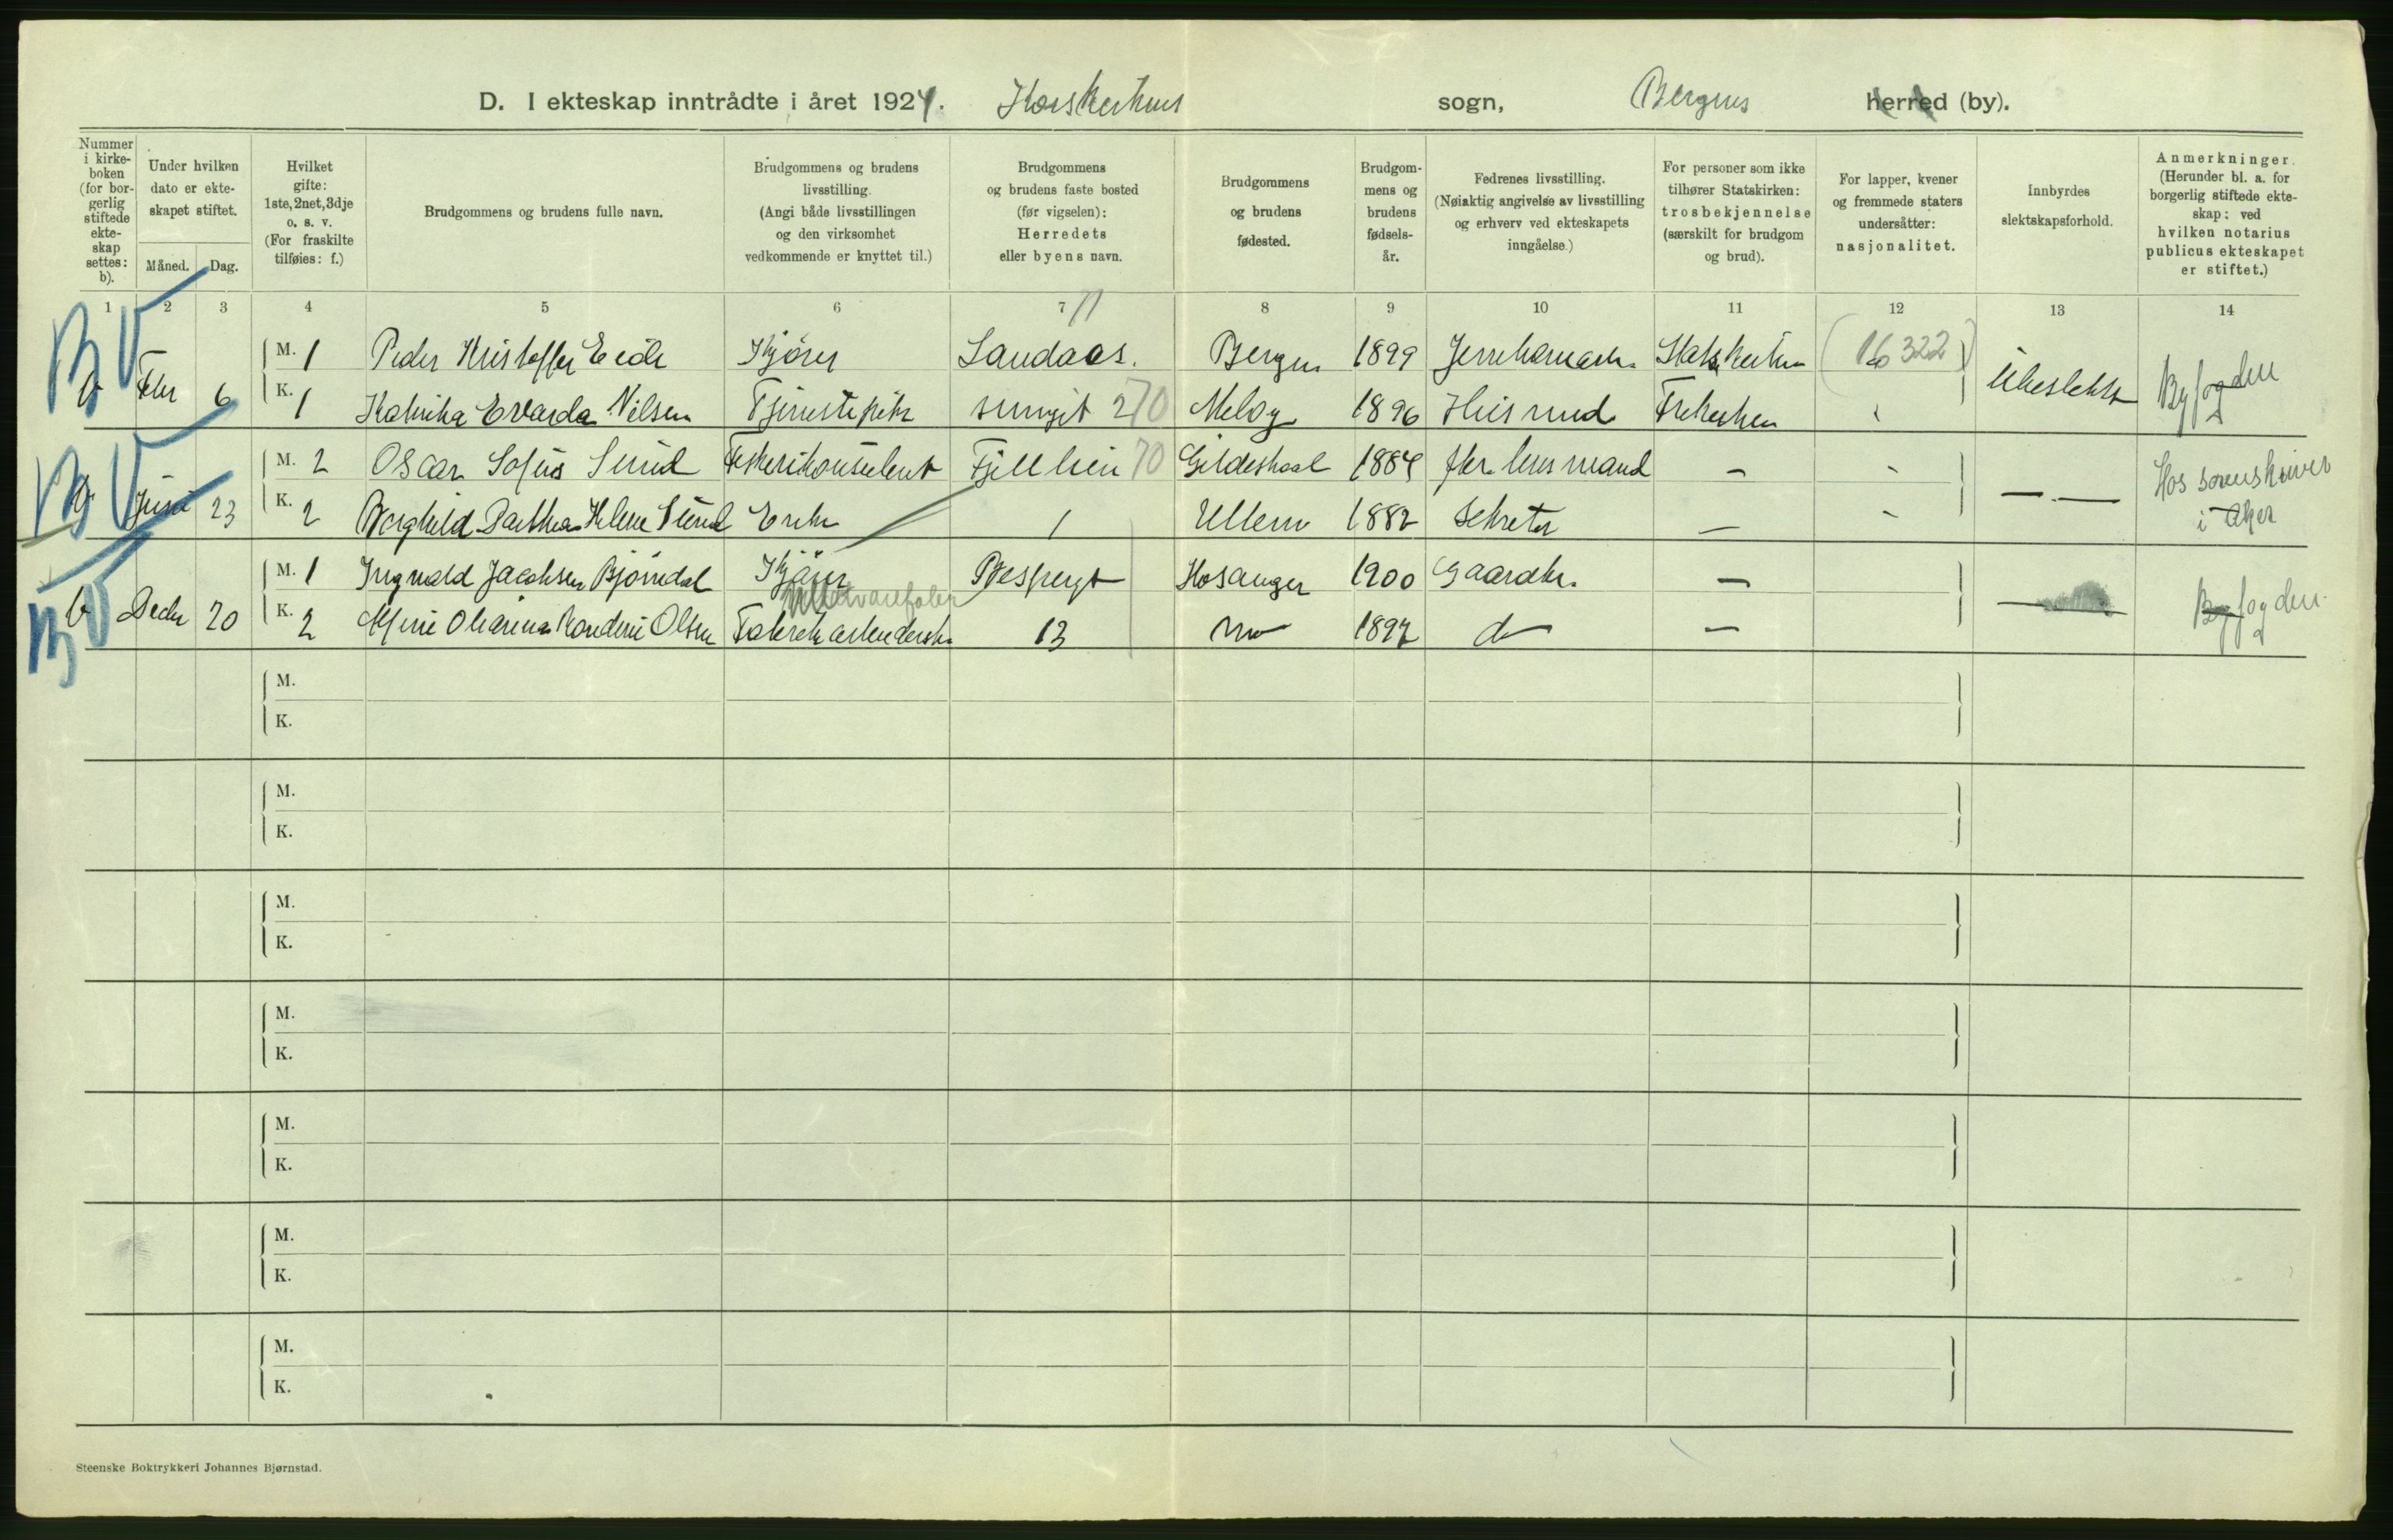 D. I ekteskap inntrådte i året 1924. Korskirkens sogn, Bergens herred (by).
Nummer i kirke-boken (for bor-gerlig stiftede ekte-skap settes: b).
Under hvilken dato er ekte-skapet stiftet.
Måned. Dag.
Hvilket gifte: 1ste, 2net, 3dje o. s. v. (For fraskilte tilføies: f.)
Brudgommens og brudens fulle navn.
Brudgommens og brudens livsstilling. (Angi både livsstillingen og den virksomhet vedkommende er knyttet til.)
Brudgommens og brudens faste bosted (før vigselen): Herredets eller byens navn.
Brudgommens og brudens fødested.
Brudgom-mens og brudens fødsels-år.
Fedrenes livsstilling. (Nøiaktig angivelse av livsstilling og erhverv ved ekteskapets inngåelse.)
For personer som ikke tilhører Statskirken: trosbekjennelse (særskilt for brudgom og brud).
For lapper, kvener og fremmede staters undersåtter: nasjonalitet.
Innbyrdes slektskapsforhold.
Anmerkninger. (Herunder bl. a. for borgerlig stiftede ekte-skap: ved hvilken notarius publicus ekteskapet er stiftet.)
1 2 3 4 5 6 7 8 9 10 11 12 13 14
BV
b Febr 6 M. 1 Peder Kristoffer Eide Kjører Landaas. Bergen 1899 Jernbanearb. Statskirken (16322) Ubeslektet Byfogden
K. 1 Katrine Evarda Nilsen Tjenestepike 270 Meløy 1896 Husmand Frikirken
BV
b Juni 23 M. 2 Oscar Sofus Sund Fiskerikonsulent Fjellien 70 Gildeskaal 1884 fhv. lensmand — - — Hos sorenskriver
K. 2 Borghild Dorthea Helene Sund Enke 1 Ullern 1882 Sekretær — - i Aker
BV
b Decbr 20 M. 1 Ingvald Jacobsen Bjørndal Kjører Hosanger 1900 Gaardbr. — — Byfogden.
K. 2 Olsen Fabrekarbeiderske 13 1897 do —
M.
K.
M.
K.
M.
K.
M.
K.
M.
K.
M.
K.
M.
K.
Steenske Boktrykkeri Johannes Bjørnstad.